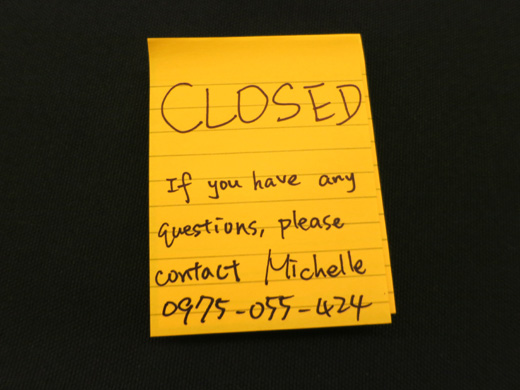 CLOSED
If you have any
questions, please
contact Michelle
0975-055-424